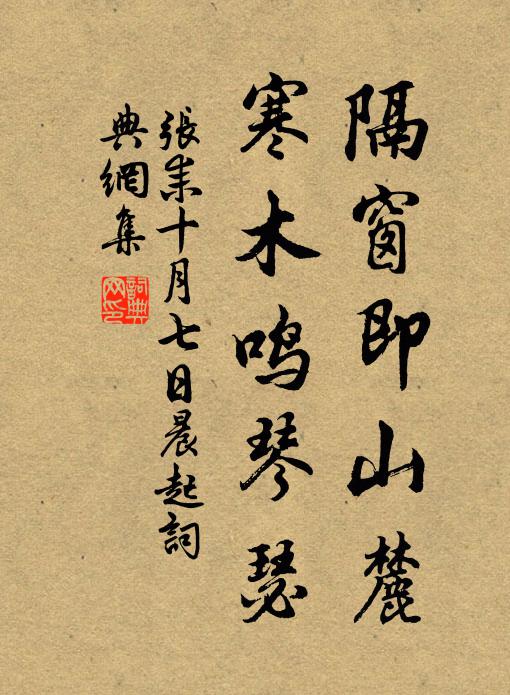 隔窗即山麓
寒木鸣琴瑟
張耒十月七日晨起詞
典網集
詞典网印